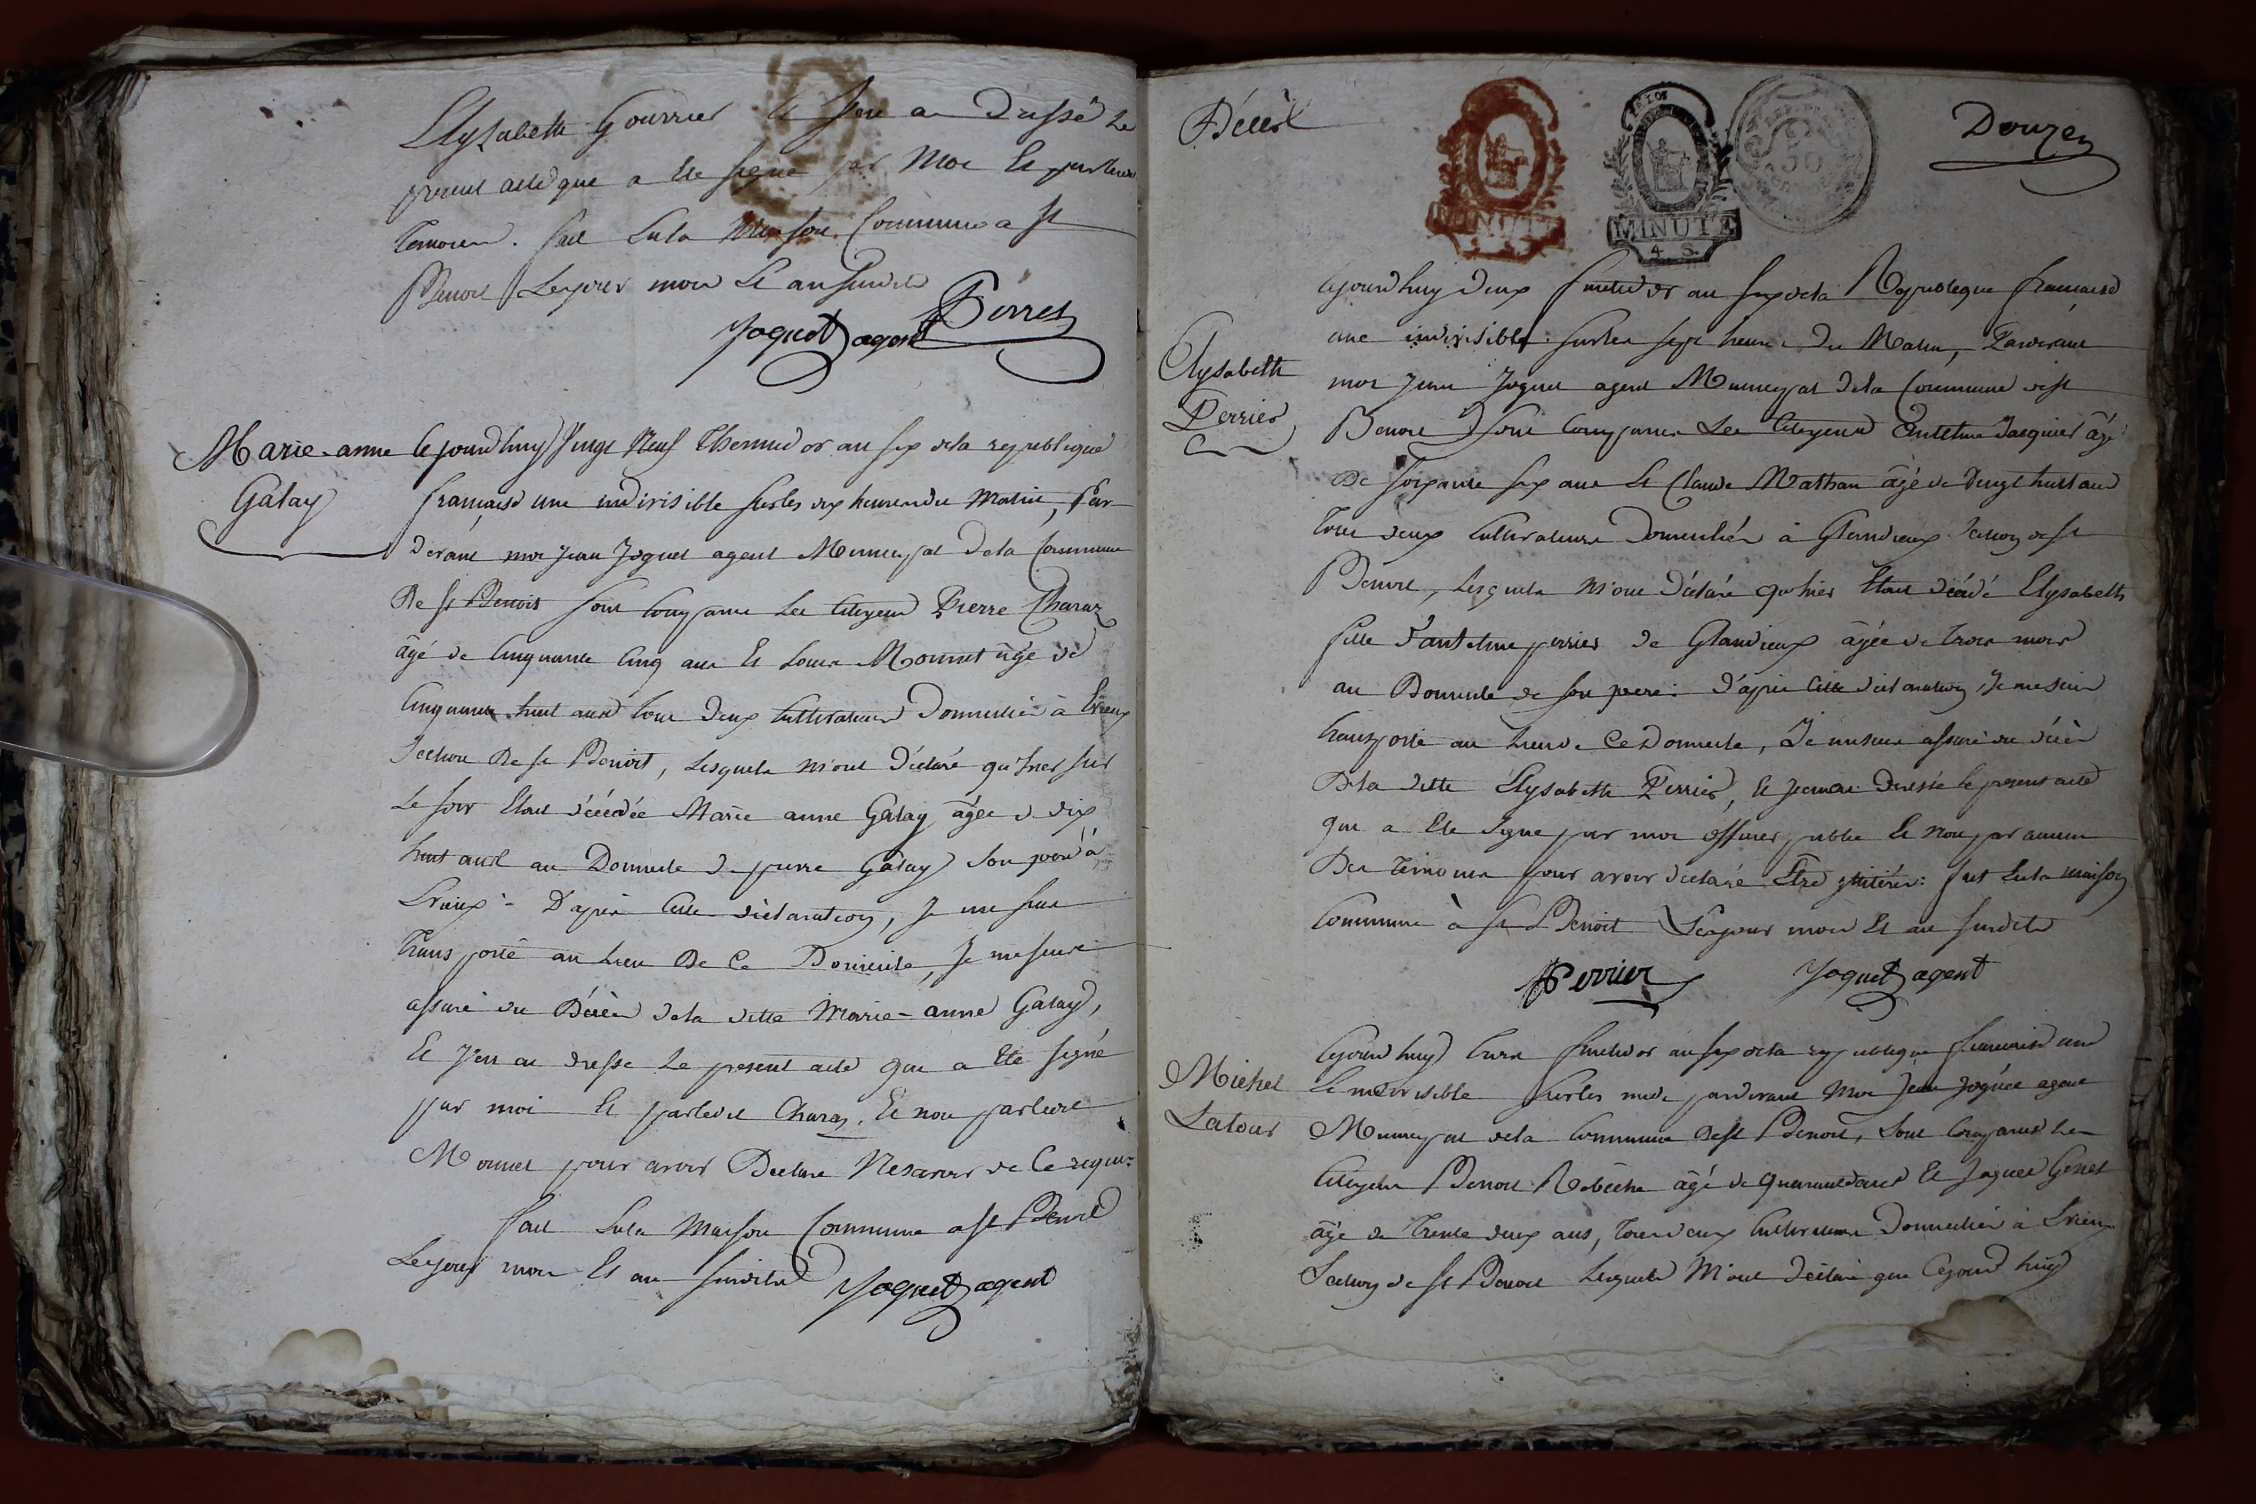 Elyzabeth Gourrier Et J'en ai Dressé Le
present acte que a ete signé par Moi Et par Leurs
temoins. fait En la Maison Commune a St
Benoit Les jour mois Et an susdit
Joquet agent Perret
Marie-anne
Galay
Cejourd'huy Vingt Neuf Thermidor an six de la republique
francaise une indivisible sur les dix heures du Matin, Par-
devant moi Jean Joquet agent Municipal De la Commune
De St Benoit sont Comparus Les Citoyens Pierre Charaz
âgé de Cinquante Cinq ans Et Louis Monnet âgé de
Cinquante huit ans tous deux Cultivateurs Domiciliés à Evieux
Section De St Benoit, Lesquels m'ont Déclaré qu'hier sur
Le soir Etait décédée Marie anne Galay âgée de dix
huit ans au Domicile de pierre Galay Son pere à
Evieux - D'après Cette déclaration, Je me suis
transporté au Lieu De Ce Domicile, Je me suis
assuré du Décès de la ditte Marie-anne Galay,
Et J'en ai dressé Le present acte que a Eté signé
par moi Et par ledit Charaz, Et non par ledit
Monnet pour avoir Declaré Ne savoir de Ce requis
fait En la Maison Commune a St Benoit
Les jour mois Et an susdits Joquet agent
Décès
MINUTE
MINUTE
4 S.
50
Douze
Elysabeth
Perrier
Cejourd'huy deux fructidor an six de la Republique francaise
une indivisible sur les sept heures du Matin, Pardevant
moi Jean Joquet agent Municipal De la Commune de St
Benoit Sont Comparus Les Citoyens Anthelme Jacquier âgé
De soixante six ans Et Claude Mathan âgé de Vingt huit ans
tous deux Cultivateurs Domiciliés à Glandieux Section de St
Benoit, Lesquels m'ont Déclaré qu'hier Etait décédé Elysabeth
fille d'anthelme perrier de Glandieux âgée de trois mois
au Domicile de son pere: D'après Cette déclaration, Je me suis
transporté au Lieu de Ce Domicile, Je me suis assuré du décès
De la ditte Elysabeth Perrier, Et J'en ai dressé le present acte
que a Ete signé par moi officier public Et non par aucun
Des temoins pour avoir declaré Etre illitérés: fait En la maison
Commune à St Benoit Les jour mois Et an susdits
Perrier Joquet agent
Michel
Latour
Cejourd'huy treize fructidor an six de la republique francaise une
Et indivisible sur les midi pardevant Moi Jean Joquet agent
Municipal de la Commune De St Benoit, Sont Comparus Les
Citoyens Benoit Robeche âgé de quarante ans Et Jaques Genet
âgé de trente deux ans, tous deux Cultivateurs Domiciliés à Evieux
Section de St Benoit Lesquels M'ont déclaré que Cejourd'huy